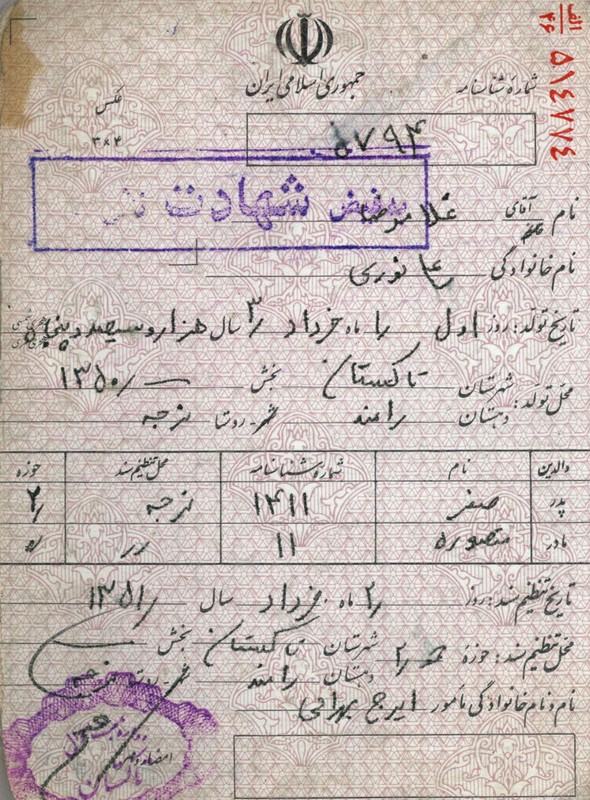 جمهوری اسلامی ایران
شمارهٔ شناسنامه
الف
۴۶
۵۱۴۷۷۴
عکس
۳×۴
۵۷۹۴
بفیض شهادت
نام آقای غلامرضا
نام خانوادگی نوری
تاریخ تولد: روز اول ماه خرداد ۳ سال هزار و سیصد و پنجاه
محل تولد: شهرستان تاکستان بخش ۱۳۵۰
دهستان رامند روستا نرجه
والدین نام شمارهٔ شناسنامه محل تنظیم سند حوزه
پدر صفر ۱۴۱۱ نرجه ۲
مادر منصوره ۱۱
تاریخ تنظیم سند: روز ماه خرداد سال ۱۳۵۱
محل تنظیم سند: حوزه ۲ شهرستان تاکستان بخش
دهستان رامند روستا نرجه
نام و نام خانوادگی مأمور ایرج بهرامی
امضاء و مهر
تاکستان